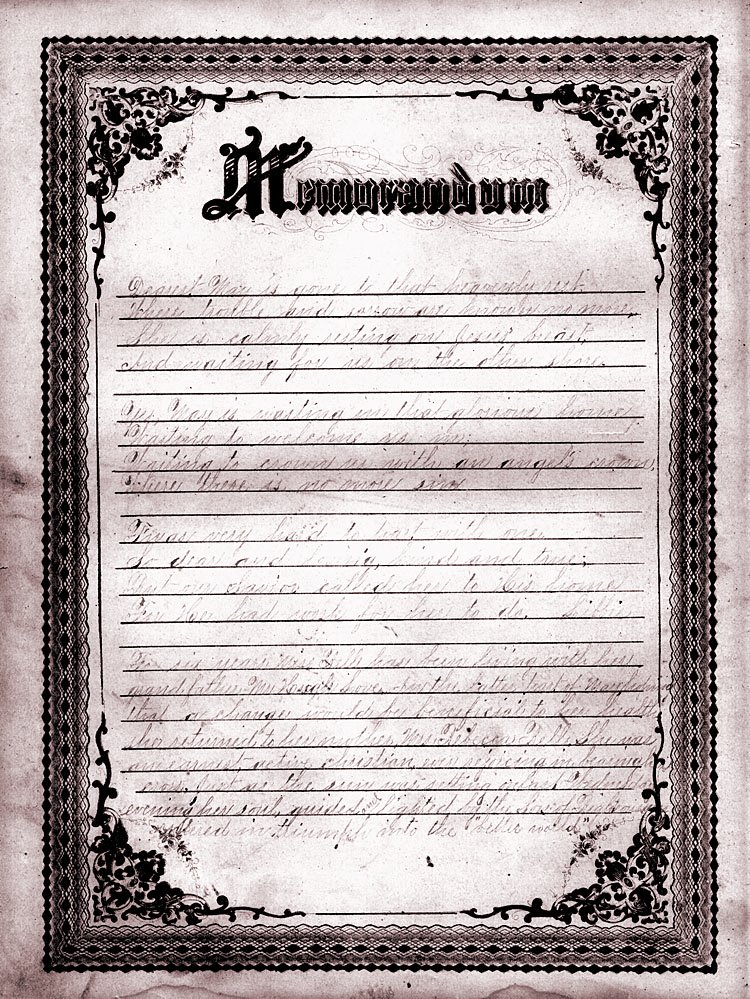 Memorandum
Dearest May is gone to that heavenly rest
Where trouble and sorrow are known no more,
She is calmly resting on Jesus' breast,
And waiting for us on the other shore.
Yes, May is waiting in that glorious home,
Waiting to welcome us in;
Waiting to crown us with an angel's crown,
Where there is no more sin
'Twas very hard to part with one,
So dear and loving, kind and true;
But our Savior called her to His home
For He had work for her to do.
For six years Miss Bell has been living with her
grandfather, Mr. Love,
that a change would be beneficial to her health
she returned to her mother, Mrs. Rebecca Bell. She was
an earnest active christian, ever rejoicing in bearing
cross. Just as the sun was setting
evening her soul, guided and lighted by the Son of
in triumph into the "better world"